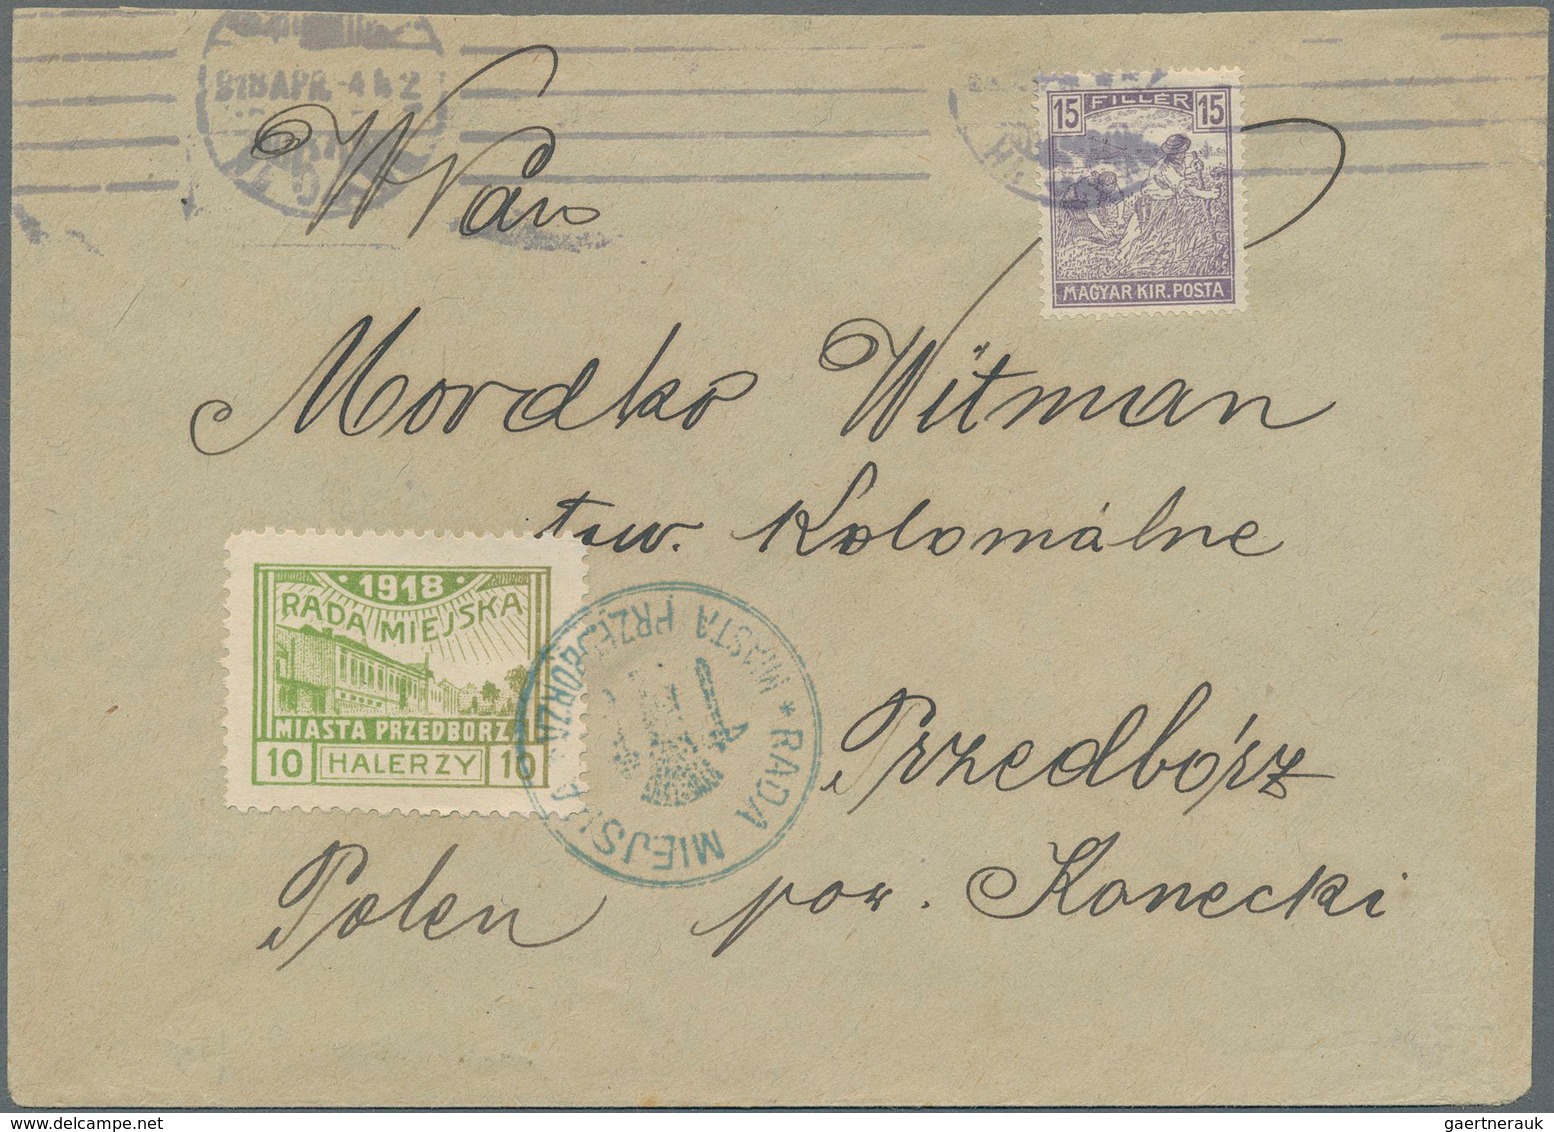 918 APR. -4 4 2
15 FILLÉR 15
MAGYAR KIR. POSTA
Wan
Mordko Witman
tow. Kolomálne
1918
RADA MIEJSKA
MIASTA PRZEDBORZA
10 HALERZY 10
* RADA MIEJSKA MIASTA PRZEDBORZA
Przedbórz
Polen pow. Konecki
gaertnerauk@delcampe.net